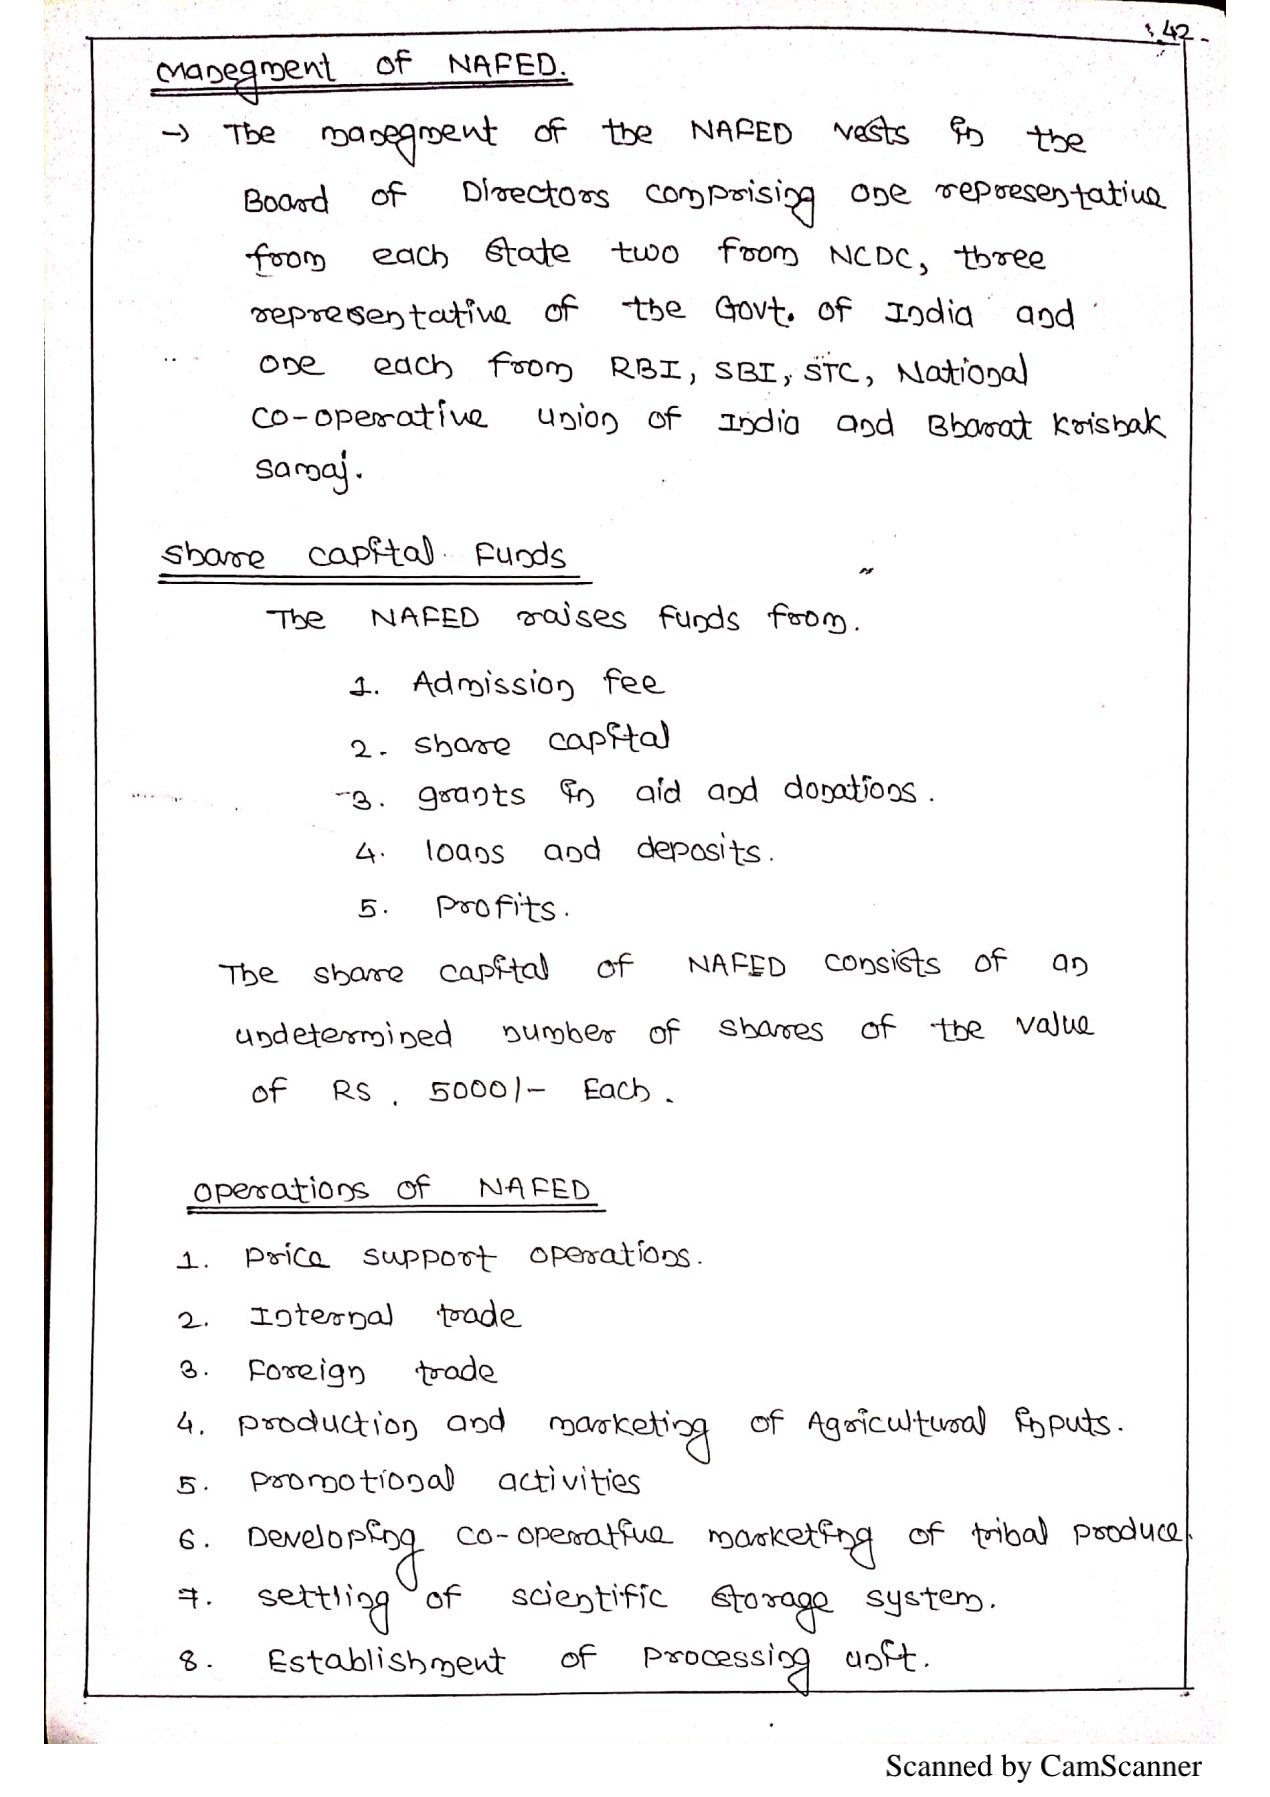 42
Manegment of NAFED.
→ The manegment of the NAFED vests in the
Board of Directors comprising one representative
from each state two from NCDC, three
representative of the Govt. of India and
one each from RBI, SBI, STC, National
co-operative union of India and Bharat Krishak
samaj.
share capital Funds
The NAFED raises funds from.
1. Admission fee
2. share capital
3. grants in aid and donations.
4. loans and deposits.
5. Profits.
The share capital of NAFED consists of an
undetermined number of shares of the value
of RS. 5000/- Each.
operations of NAFED
1. Price support operations.
2. Internal trade
3. Foreign trade
4. production and marketing of Agricultural inputs.
5. promotional activities
6. Developing co-operative marketing of tribal produce.
7. settling of scientific storage system.
8. Establishment of processing unit.
Scanned by CamScanner